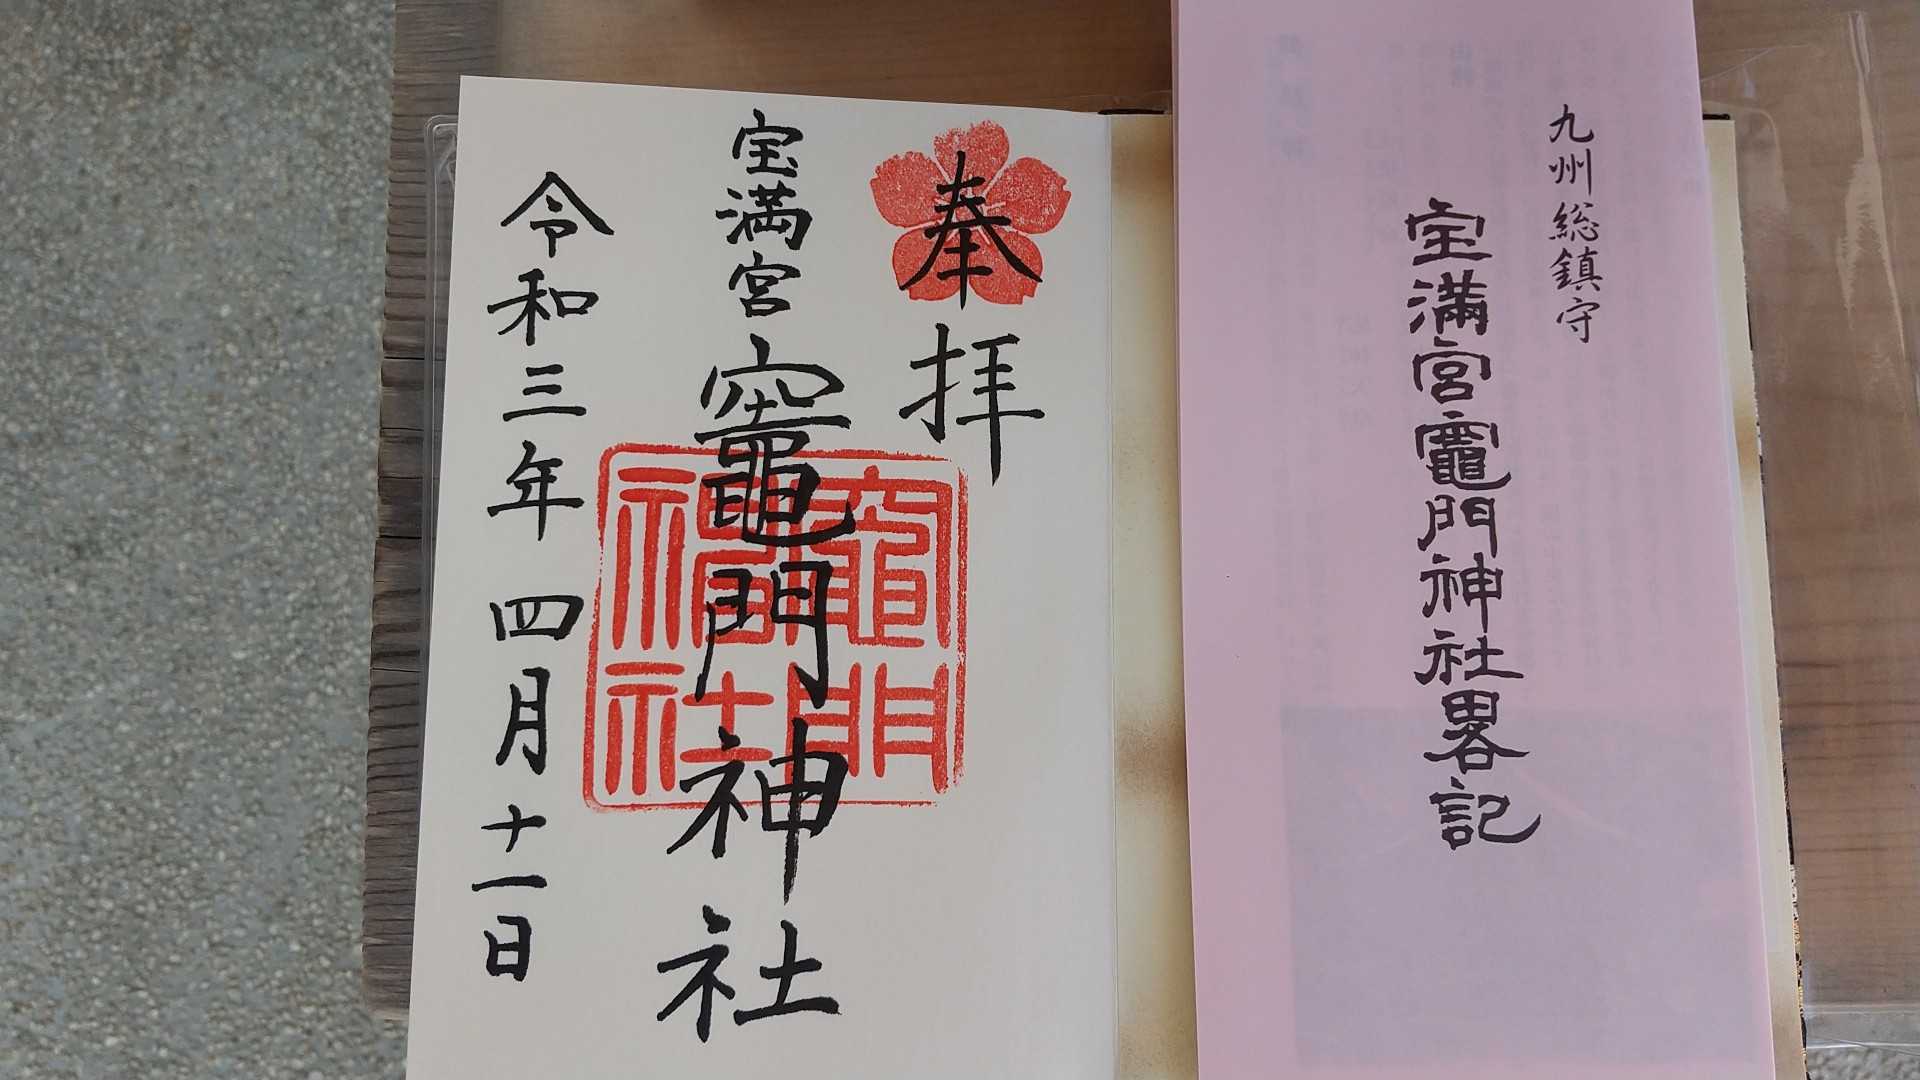 九州総鎮守
宝満宮竈門神社畧記
奉拝
宝満宮竈門神社
令和三年四月十一日
竈門
神社